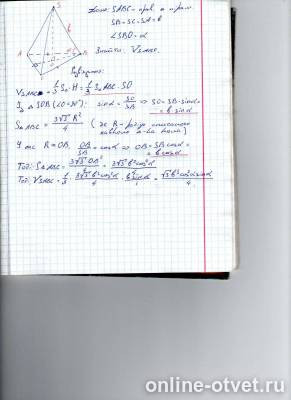 SABC - прав.
SB=SC=SA=b
∠SBO=α
Знайти: V SABC.
V SABC = 1/3 S₀·H = 1/3 S ABC·SO
SOB (∠O=90°): sinα = SO/SB ⇒ SO=SB·sinα = b sinα
S ABC = 3√3 R²/4 (де R - радіус описаного кола)
R=OB. OB/SB = cosα ⇒ OB=SB cosα = b cosα
Тоді: S ABC = 3√3 OB²/4 = 3√3 b² cos²α/4
Тоді V SABC = 1/3 · 3√3 b² cos²α/4 · b sinα/1 = √3 b³ cos²α sinα/4
online-otvet.ru